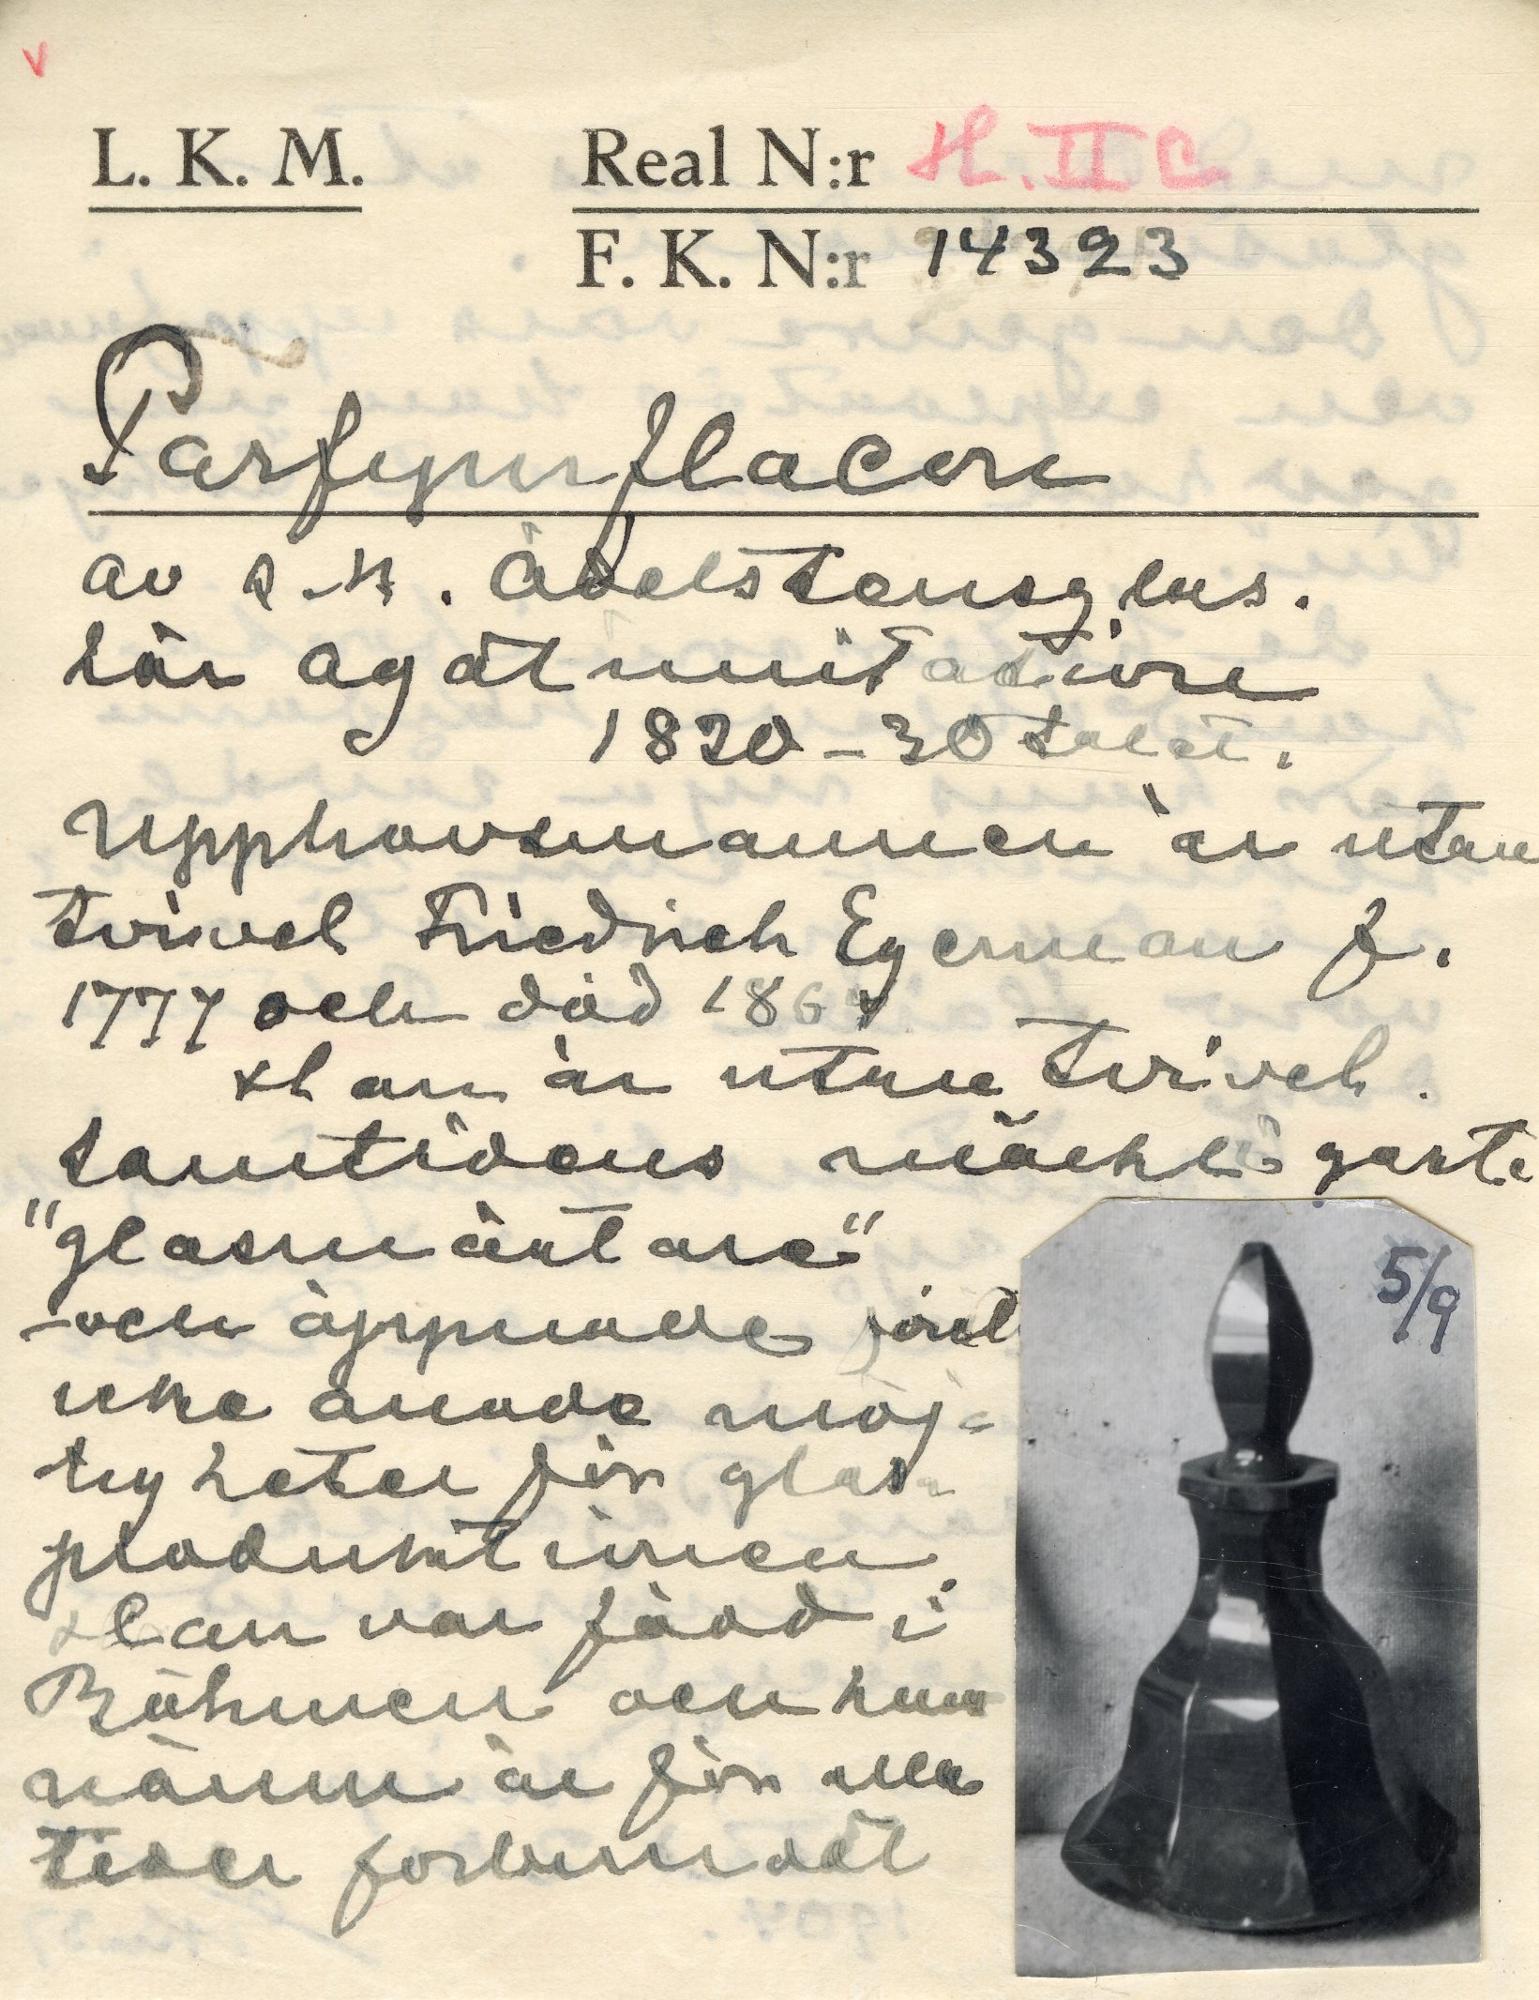 v
L. K. M. Real N:r H. II C
F. K. N:r 14323
Parfymflacon
av s.k. ädelstensglas.
här agatimitation
1820-30 talet.
Upphovsmannen är utan
tvivel Friedrich Egerman f.
1777 och död 1864
Han är utan tvivel
samtidens mäktigaste
"glasmästare"
och öppnade förut
icke anade möj-
ligheter för glas-
produktionen.
Han var född i
Böhmen och hans
namn är för alla
tider förbundet
5/9